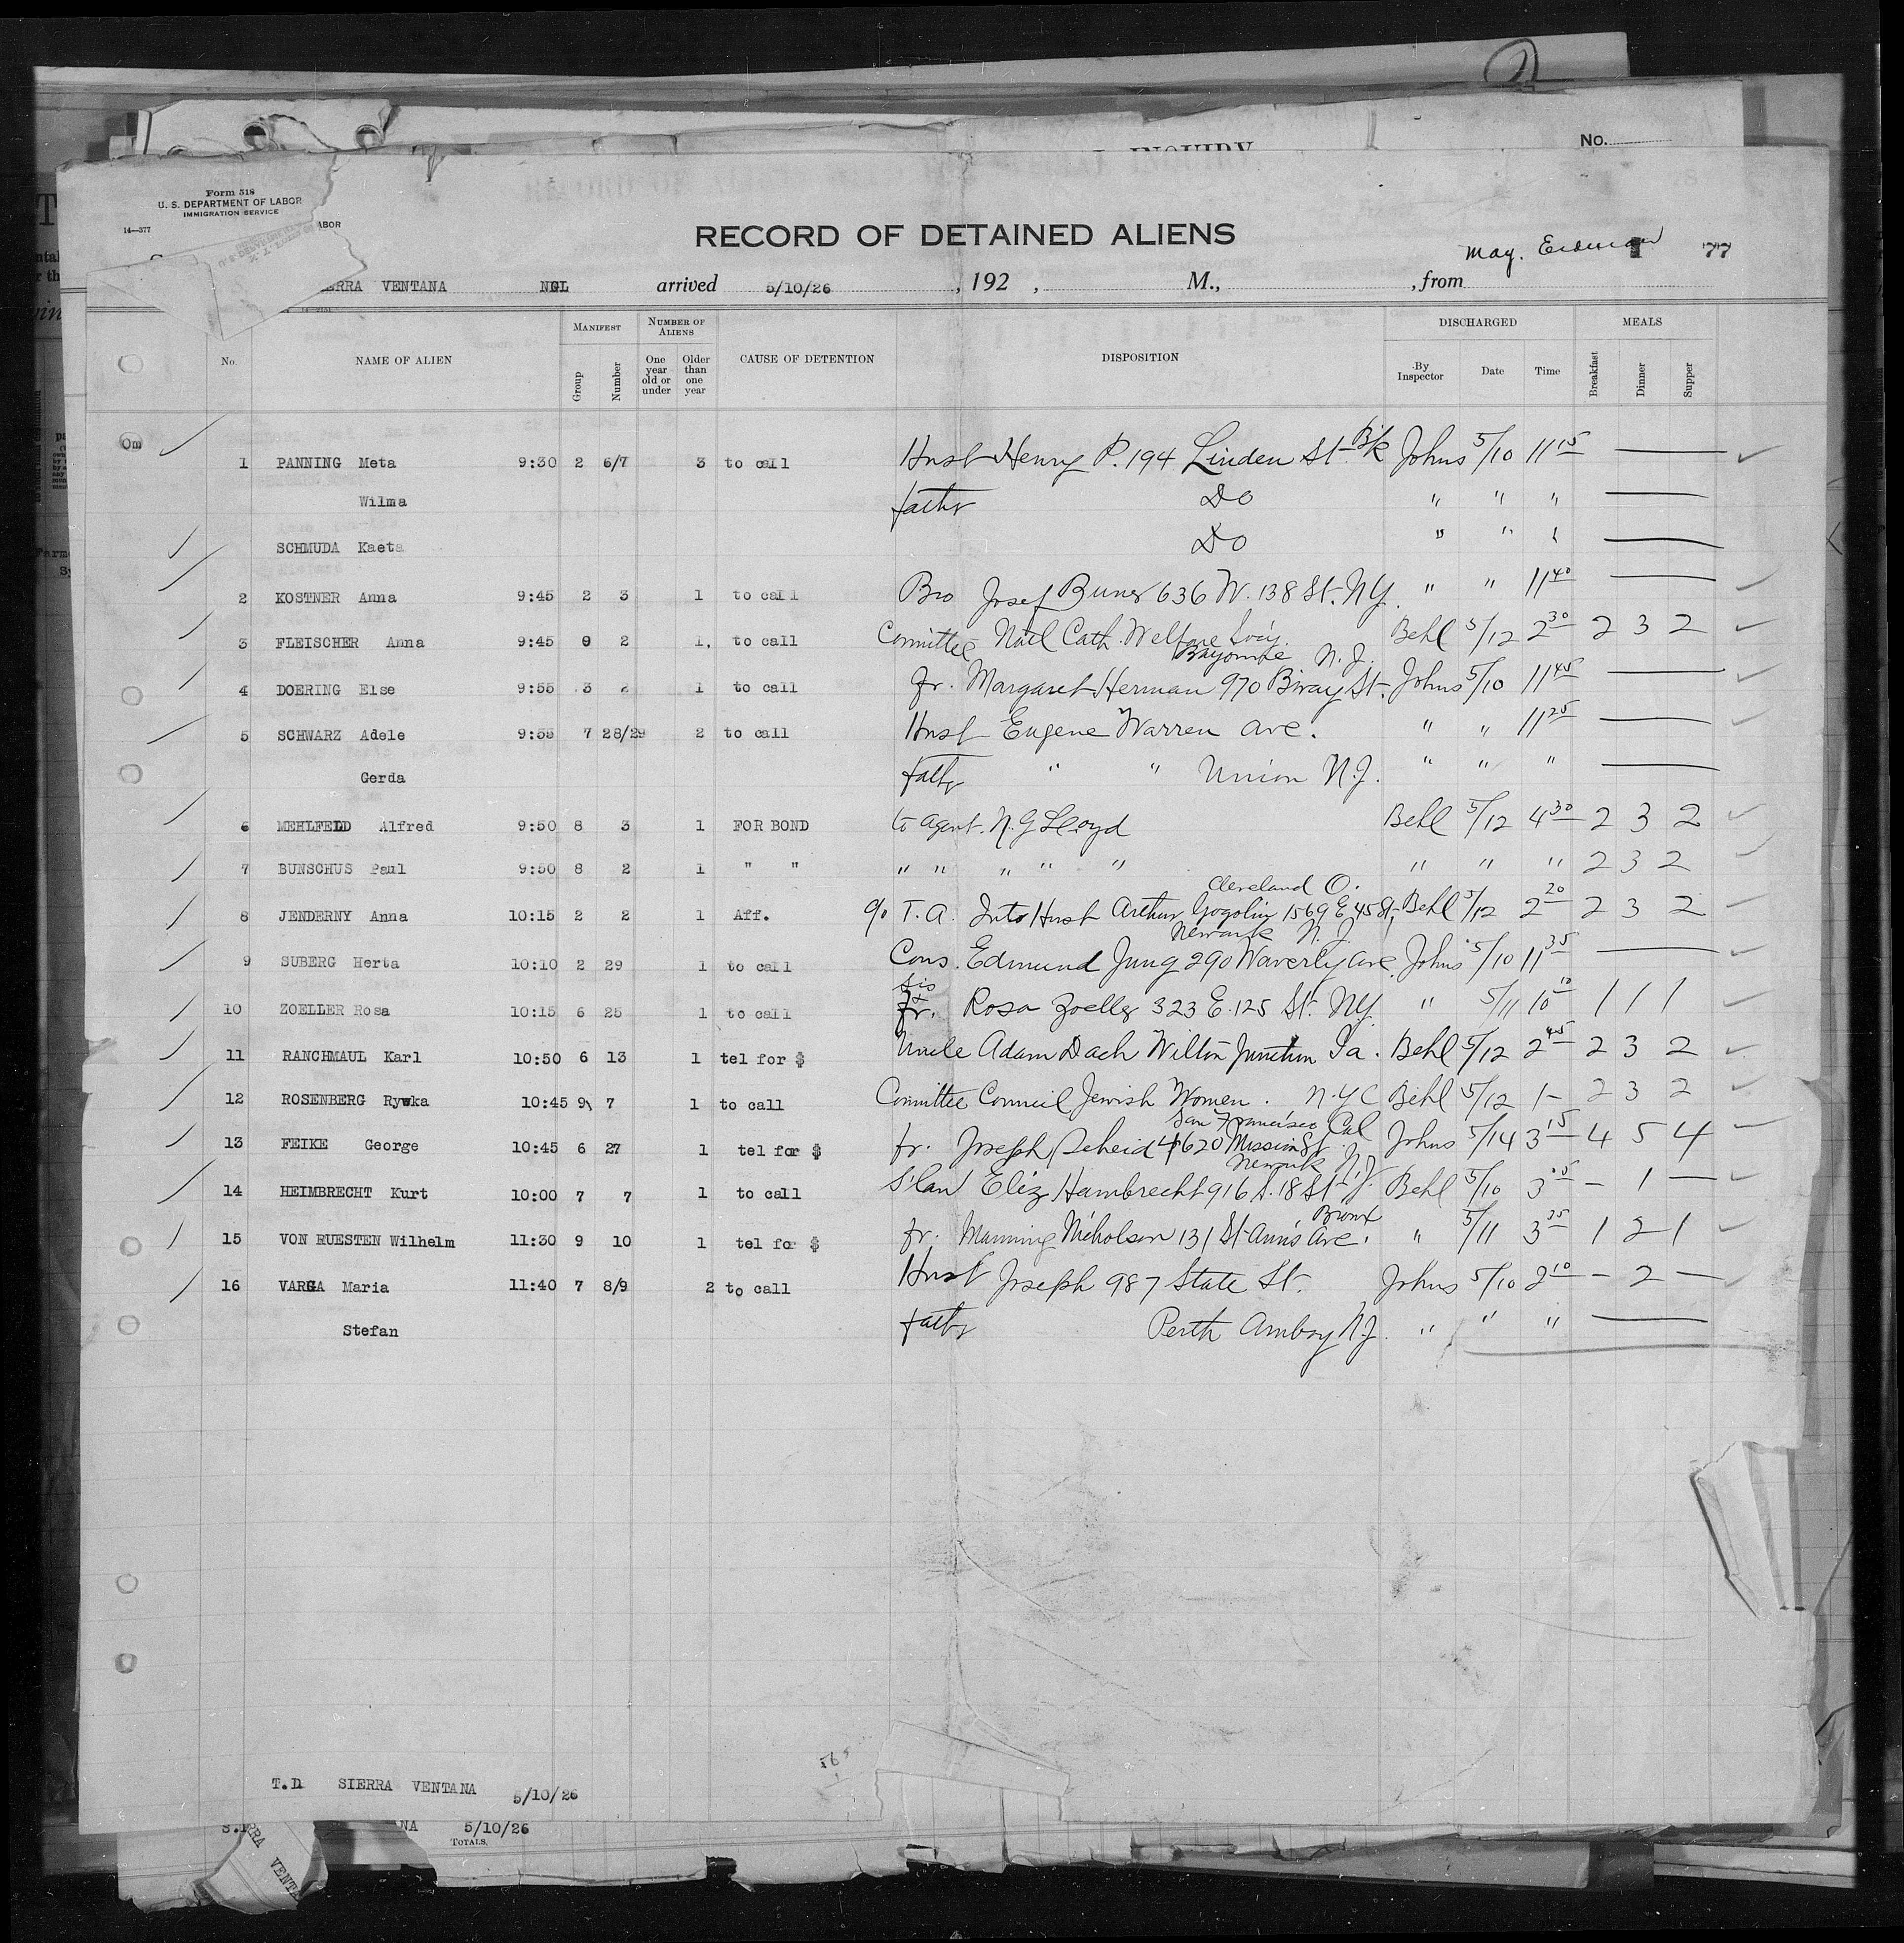 No.
Form 518
U. S. DEPARTMENT OF LABOR
IMMIGRATION SERVICE
14—377
ABOR
RECORD OF DETAINED ALIENS
77
ERRA VENTANA NGL arrived 5/10/26 , 192 , M., , from May.
No. NAME OF ALIEN MANIFEST Group Number NUMBER OF ALIENS One year old or under Older than one year CAUSE OF DETENTION DISPOSITION DISCHARGED By Inspector Date Time MEALS Breakfast Dinner Supper
1 PANNING Meta 9:30 2 6/7 3 to call Husb Henry P. 194 Linden St Bk Johns 5/10 11 15 —
Wilma father Do " " " —
SCHMUDA Kaeta Do " " " —
2 KOSTNER Anna 9:45 2 3 1 to call Bro Josef 636 W. 138 St. NY. " " 11 40 —
3 FLEISCHER Anna 9:45 9 2 1. to call Committee Natl Cath. Welfare Behl 5/12 2 30 2 3 2
Bayonne N.J.
4 DOERING Else 9:55 3 2 1 to call fr. Margaret Herman 970 Bway St. Johns 5/10 11 45 —
5 SCHWARZ Adele 9:55 7 28/29 2 to call Husb Eugene Warren Ave. " " 11 25 —
Gerda father " " Union N.J. " " " —
6 MEHLFELD Alfred 9:50 8 3 1 FOR BOND to agent. N. G Lloyd Behl 5/12 4 30 2 3 2
7 BUNSCHUS Paul 9:50 8 2 1 " " " " " " " " " " 2 3 2
Cleveland O.
8 JENDERNY Anna 10:15 2 2 1 Aff. c/o T. A. Into Husb Arthur Gogolin 1569 E 45 St, Behl 5/12 2 20 2 3 2
Newark N. J.
9 SUBERG Herta 10:10 2 29 1 to call Cous. Edmund Jung 290 Waverly Ave. Johns 5/10 11 35 —
sis
10 ZOELLER Rosa 10:15 6 25 1 to call fr. Rosa Zoeller 323 E. 125 St. NY. " 5/11 10 10 1 1 1
11 RANCHMAUL Karl 10:50 6 13 1 tel for $ Uncle Adam Dach Wilton Junction Ia. Behl 5/12 2 45 2 3 2
12 ROSENBERG Rywka 10:45 9 7 1 to call Committee Council Jewish Women. N.Y C Behl 5/12 1 — 2 3 2
San Francisco Cal
13 FEIKE George 10:45 6 27 1 tel for $ fr. Joseph Scheid 4620 Mission St. Johns 5/14 3 15 4 5 4
Newark N.J.
14 HEIMBRECHT Kurt 10:00 7 7 1 to call S'law Eliz Hambrecht 916 S. 18 St Behl 5/10 3 — 1 —
Bronx
15 VON RUESTEN Wilhelm 11:30 9 10 1 tel for $ fr. Manning Nicholson 131 St Ann's Ave. " 5/11 3 35 1 2 1
16 VARGA Maria 11:40 7 8/9 2 to call Husb Joseph 987 State St. Johns 5/10 2 10 — 2 —
Stefan father Perth Amboy N.J. " " " —
T.D SIERRA VENTANA 5/10/26
NA 5/10/26
TOTALS.